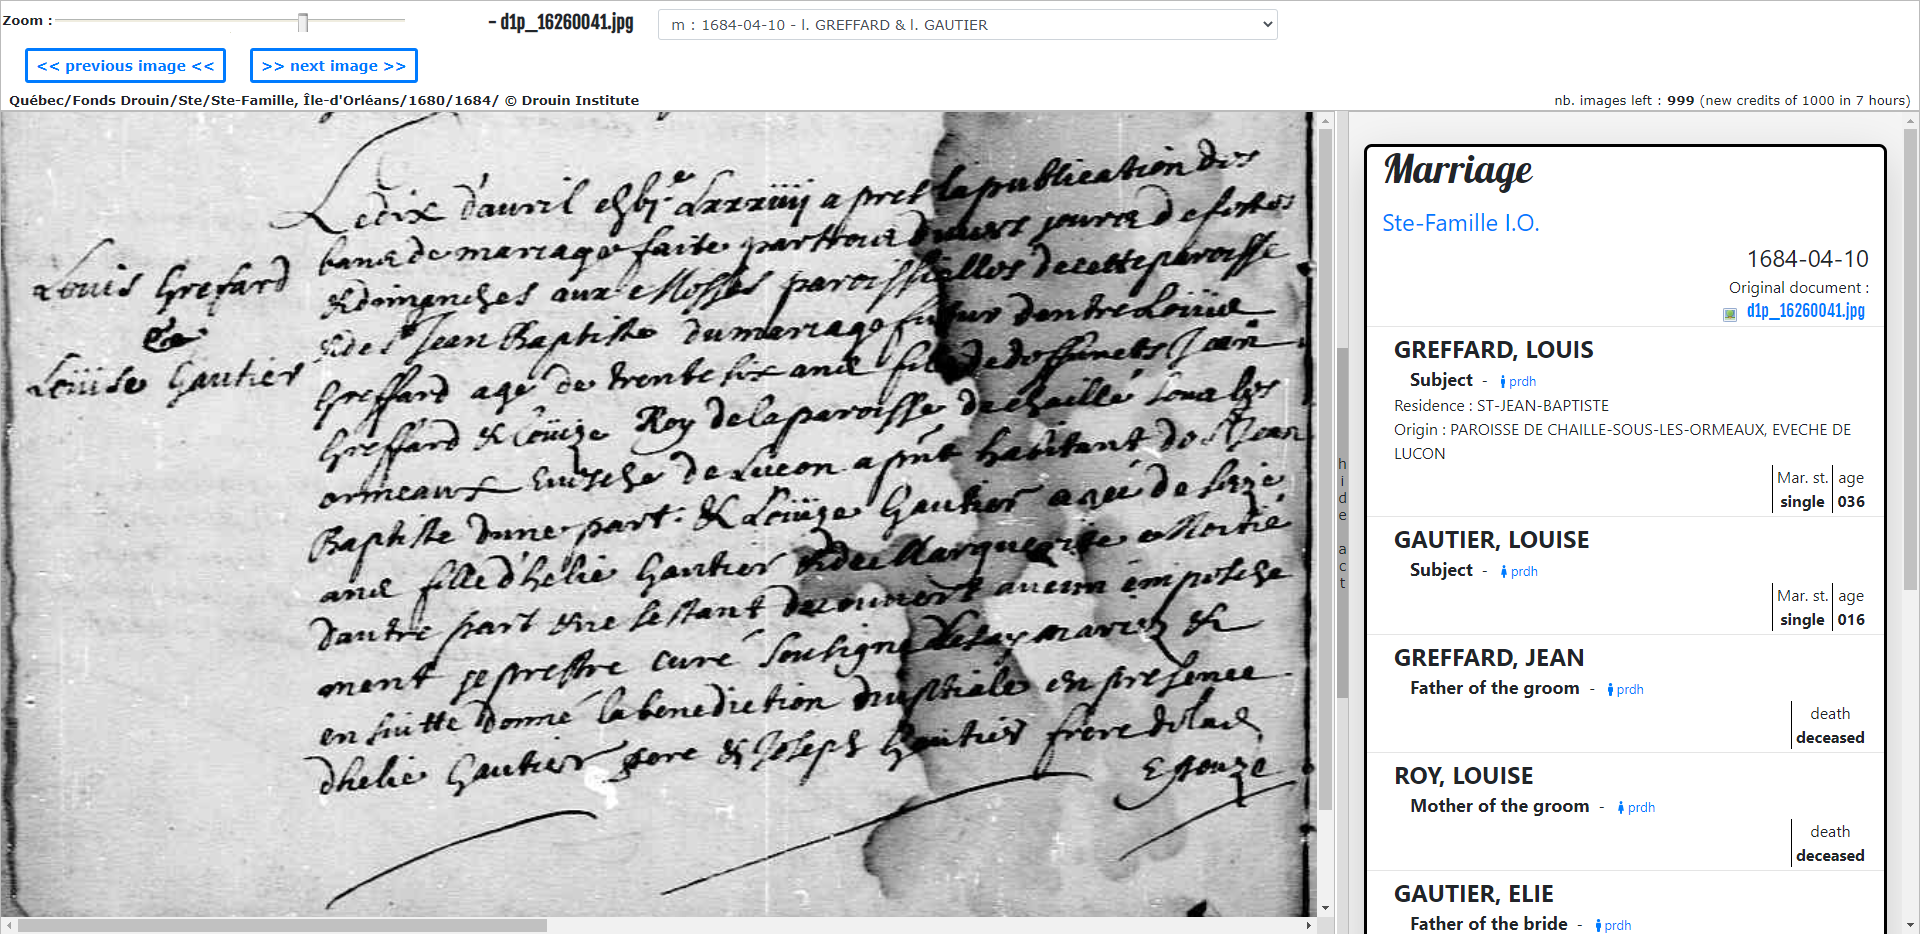 Zoom :
- d1p_16260041.jpg
m : 1684-04-10 - l. GREFFARD & l. GAUTIER
<< previous image <<
>> next image >>
Québec/Fonds Drouin/Ste/Ste-Famille, Île-d'Orléans/1680/1684/ © Drouin Institute
nb. images left : 999 (new credits of 1000 in 7 hours)
Louis Grefard
&
Loüise Gautier
Le dix d'auril apres la publication des
bans de mariage faite par trois diuers jours de festes
& dimanches aux Messes paroissielles de cette paroisse
& de St Jean Baptiste du mariage futur dentre Loüis
Greffard agé de trente six ans fils de deffuncts Jean
Greffard & Loüize Roy de la paroisse de chaillé soux les
ormeaux Euesché de Luçon a pnt habitant de St Jean
Baptiste dune part. & Loüize Gautier agée de seize
ans fille d'helie Gautier & de Marguerite Moitié
dautre part & ne sestant decouuert aucun empesche
ment je prestre curé soubsigné les ay mariez &
en suitte donné la benediction nuptiale en presence
dhelie Gautier pere & Joseph Gautier frere de lad.
Espouze
hide act
Marriage
Ste-Famille I.O.
1684-04-10
Original document :
d1p_16260041.jpg
GREFFARD, LOUIS
Subject - prdh
Residence : ST-JEAN-BAPTISTE
Origin : PAROISSE DE CHAILLE-SOUS-LES-ORMEAUX, EVECHE DE
LUCON
Mar. st. age
single 036
GAUTIER, LOUISE
Subject - prdh
Mar. st. age
single 016
GREFFARD, JEAN
Father of the groom - prdh
death
deceased
ROY, LOUISE
Mother of the groom - prdh
death
deceased
GAUTIER, ELIE
Father of the bride - prdh